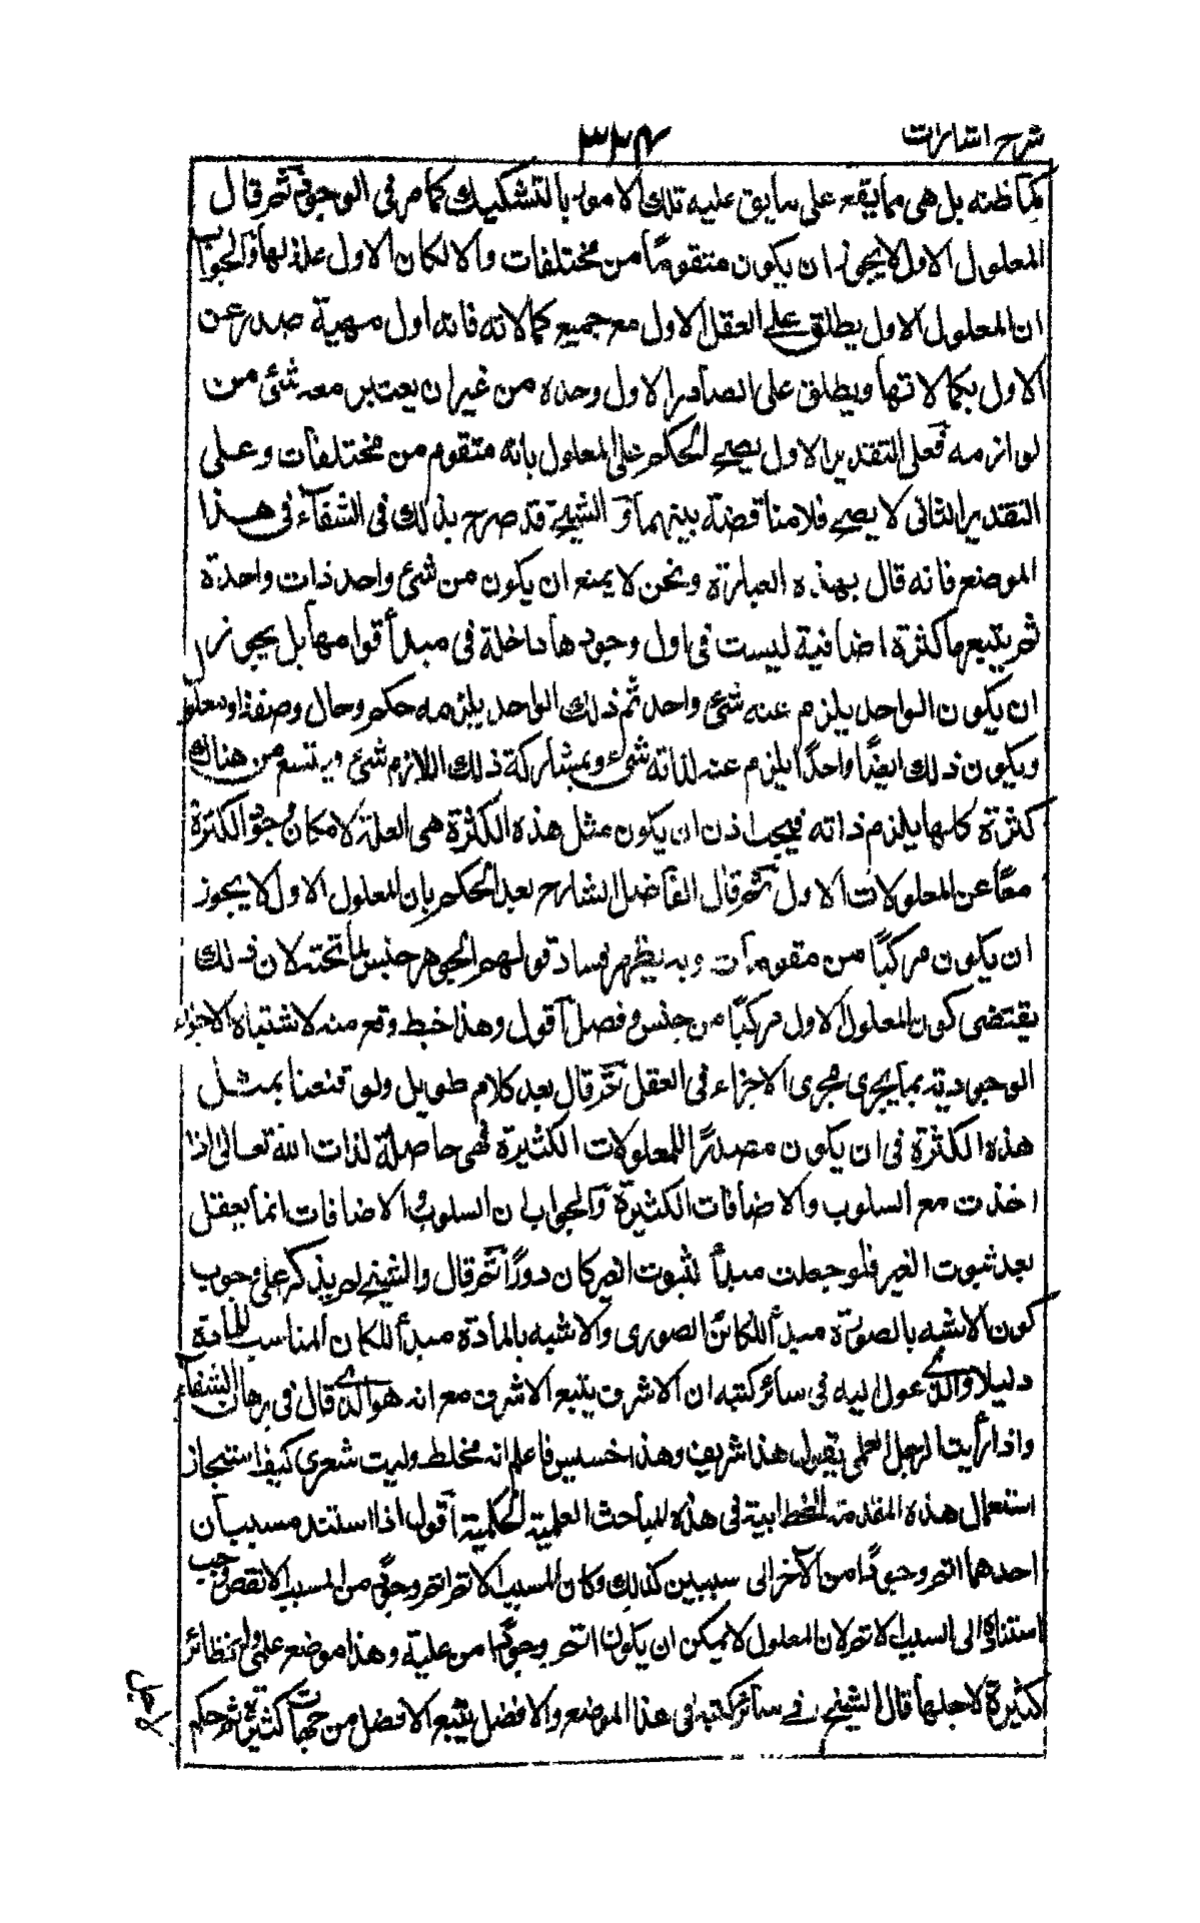 شرح اشارات
۳۳۴
كما ظنه بل هى مما يقع على ما يقع عليه تلك الامور بالتشكيك كما مر فى الوجود ثم قال
المعلول الاول لا يجوز ان يكون متقوما من مختلفات والا لكان الاول علة لها والجواب
ان المعلول الاول يطلق على العقل الاول مع جميع كمالاته فانه اول مهية صدر عن
الاول بكمالاتها ويطلق على الصادر الاول وحده من غير ان يعتبر معه شئ من
لوازمه فعلى التقدير الاول يصح الحكم على المعلول بانه متقوم من مختلفات وعلى
التقدير الثانى لا يصح فلا مناقضة بينهما و الشيخ قد صرح بذلك فى الشفآء فى هذا
الموضع فانه قال بهذه العبارة ونحن لا يمنع ان يكون من شئ واحد ذات واحدة
ثم يتبعها كثرة اضافية ليست فى اول وجودها داخلة فى مبدأ قوامها بل يجوز
ان يكون الواحد يلزم عنه شئ واحد ثم ذلك الواحد يلزمه حكم وحال وصفة او معلول
ويكون ذلك ايضًا واحدًا يلزم عنه لذاته شئ وبمشاركة ذلك اللازم شئ ويتسع من هناك
كثرة كلها يلزم ذاته فيجب اذن ان يكون مثل هذه الكثرة هى العلة لامكان وجود الكثرة
معًا عن المعلولات الاول ثم قال الفاضل الشارح بعد الحكم بان المعلول الاول لا يجوز
ان يكون مركبًا من مقومات وبه يظهر فساد قولهم الجوهر جنس لما تحته لان ذلك
يقتضى كون المعلول الاول مركبًا من جنس وفصل اقول وهذا خبط وقع منه لاشتباه الاجزاء
الوجودية بما يجرى مجرى الاجزاء فى العقل ثم قال بعد كلام طويل ولو قنعنا بمثل
هذه الكثرة فى ان يكون مصدرًا للمعلولات الكثيرة فهى حاصلة لذات الله تعالى اذا
اخذت مع السلوب والاضافات الكثيرة والجواب ان السلوب والاضافات انما يعقل
بعد ثبوت الغير فلو جعلت مبدأ لثبوت الغير كان دورًا ثم قال والشيخ لم يذكر على وجوب
كون الاشبه بالصورة مبدأ للكائن الصورى والاشبه بالمادة مبدأ للكائن المناسب للمادة
دليلا والذى عول اليه فى سائر كتبه ان الاشرف يتبع الاشرف مع انه هو الذى قال فى برهان الشفآء
واذا رأيت الرجل العلمى يقول هذا شريف وهذا خسيس فاعلم انه مخلط وليت شعرى كيف استجاز
استعمال هذه المقدمة الخطابية فى هذه المباحث العلمية الحكمية اقول اذا استند مسببان
احدهما اتم وجودًا من الآخر الى سببين كذلك وكان المسبب الاتم اتم وجودًا من المسبب الانقص وجب
استناده الى السبب الاتم لان المعلول لا يمكن ان يكون اتم وجودًا من علية وهذا موضع علمى وله نظائر
كثيرة لاجلها قال الشيخ فى سائر كتبه فى هذا الموضع والافضل يتبع الافضل من جهات كثيرة ثم حكم
لاجل